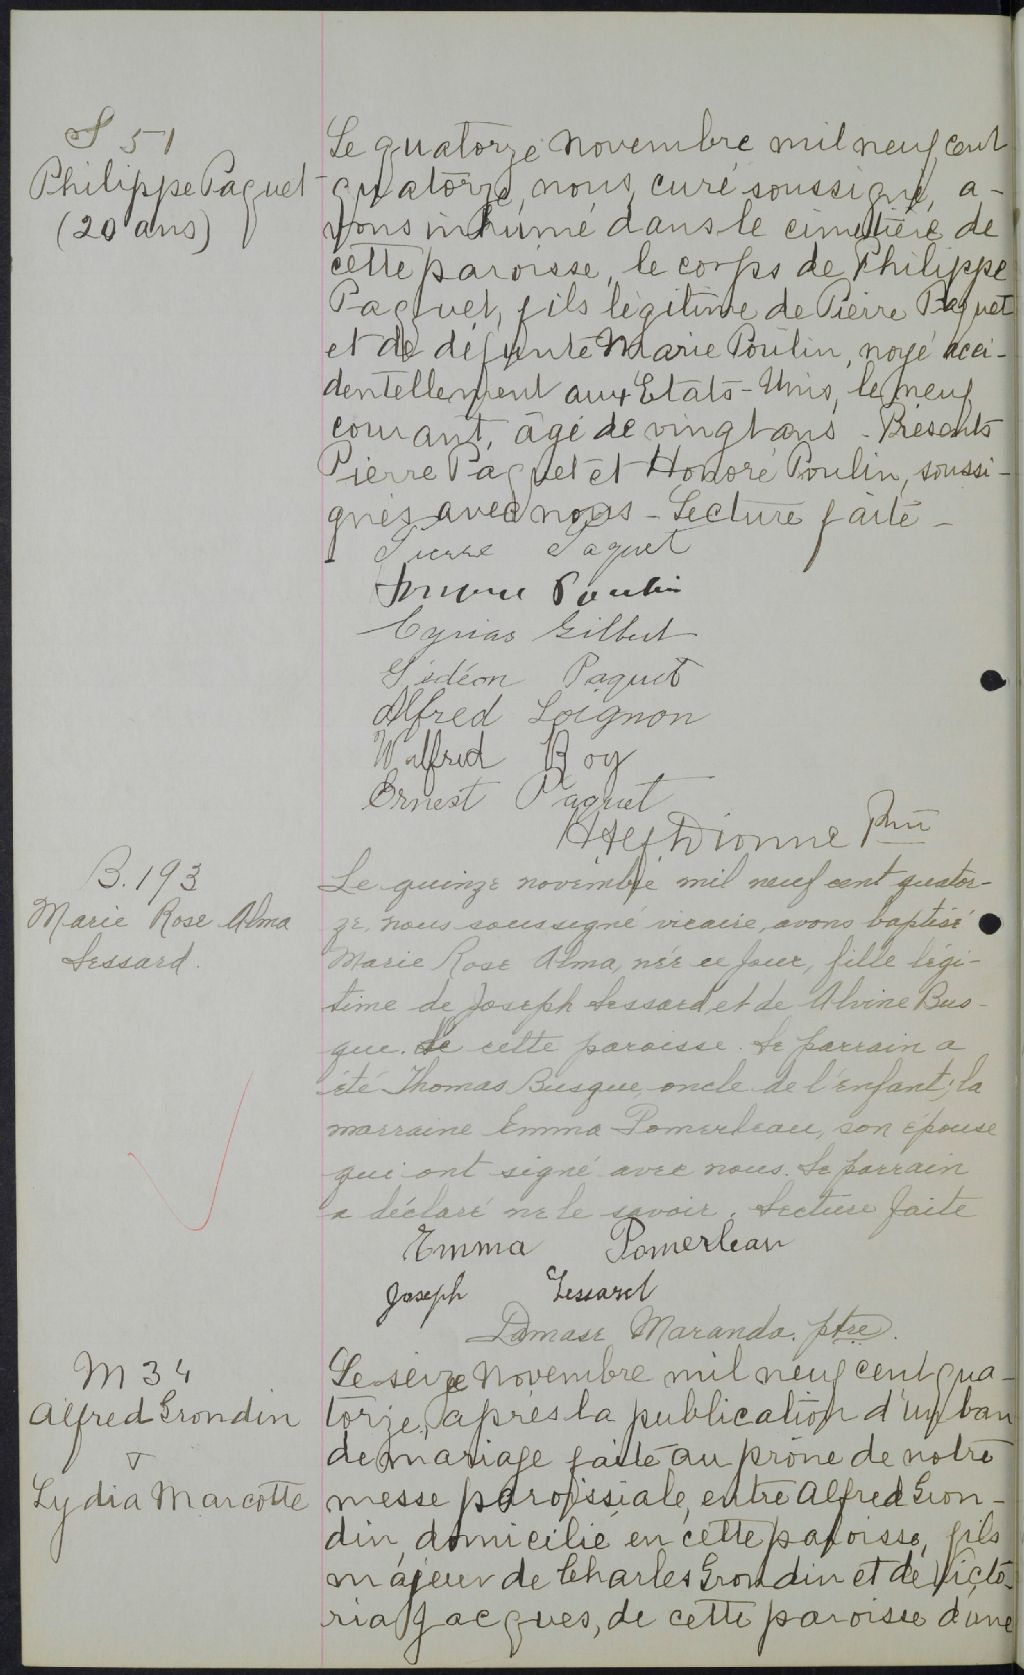 S 51
Philippe Paquet
(20 ans)
Le quatorze novembre mil neuf cent
quatorze, nous, curé soussigné, a-
vons inhumé dans le cimetière de
cette paroisse, le corps de Philippe
Paquet, fils légitime de Pierre Paquet
et de défunte Marie Poulin, noyé acci-
dentellement aux Etats-Unis, le neuf
courant, âgé de vingt ans - Présents
Pierre Paquet et Honoré Poulin, soussi-
gnés avec nous - Lecture faite -
Pierre Paquet
Honoré Poulin
Cyrias Gilbert
Gédéon Paquet
Alfred Loignon
Wilfrid Roy
Ernest Paquet
Dionne Ptre
B. 193
Marie Rose Alma
Lessard.
Le quinze novembre mil neuf cent quator-
ze, nous soussigné vicaire, avons baptisé
Marie Rose Alma, née ce jour, fille légi-
time de Joseph Lessard et de Alvine Bus-
que. de cette paroisse. Le parrain a
été Thomas Busque, oncle de l'enfant; la
marraine Emma Pomerleau, son épouse
qui ont signé avec nous. Le parrain
a déclaré ne le savoir. Lecture faite
Emma Pomerleau
Joseph Lessard
Damase Maranda. ptre.
M 34
Alfred Grondin
&
Lydia Marcotte
Le seize novembre mil neuf cent qua-
torze, après la publication d'un ban
de mariage faite au prône de notre
messe paroissiale, entre Alfred Gron-
din, domicilié en cette paroisse, fils
majeur de Charles Grondin et de Victo-
ria Jacques, de cette paroisse d'une